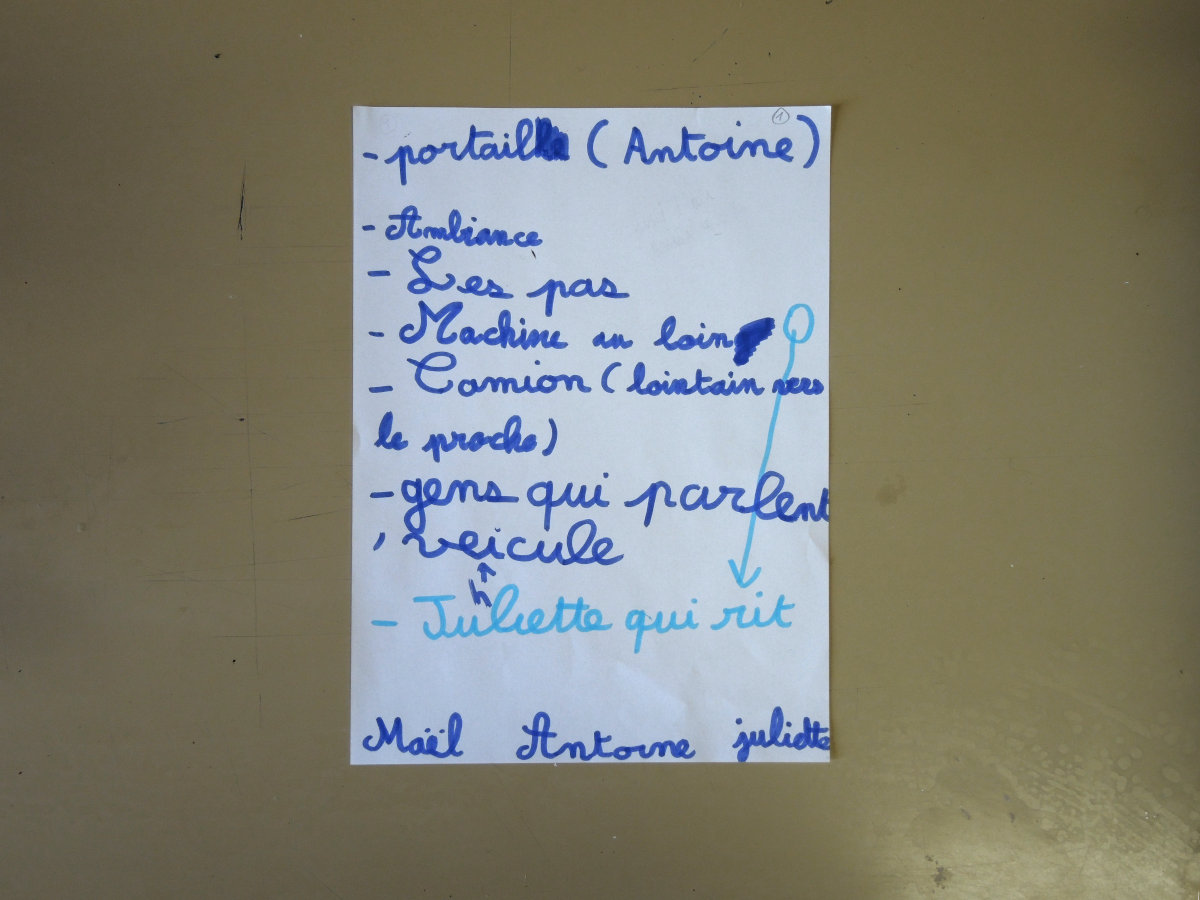 1
- portail (Antoine)
- Ambiance
- Les pas
- Machine au loin
- Camion (lointain vers
le proche)
- gens qui parlent
, veicule
h
- Juliette qui rit
Maël Antoine juliette